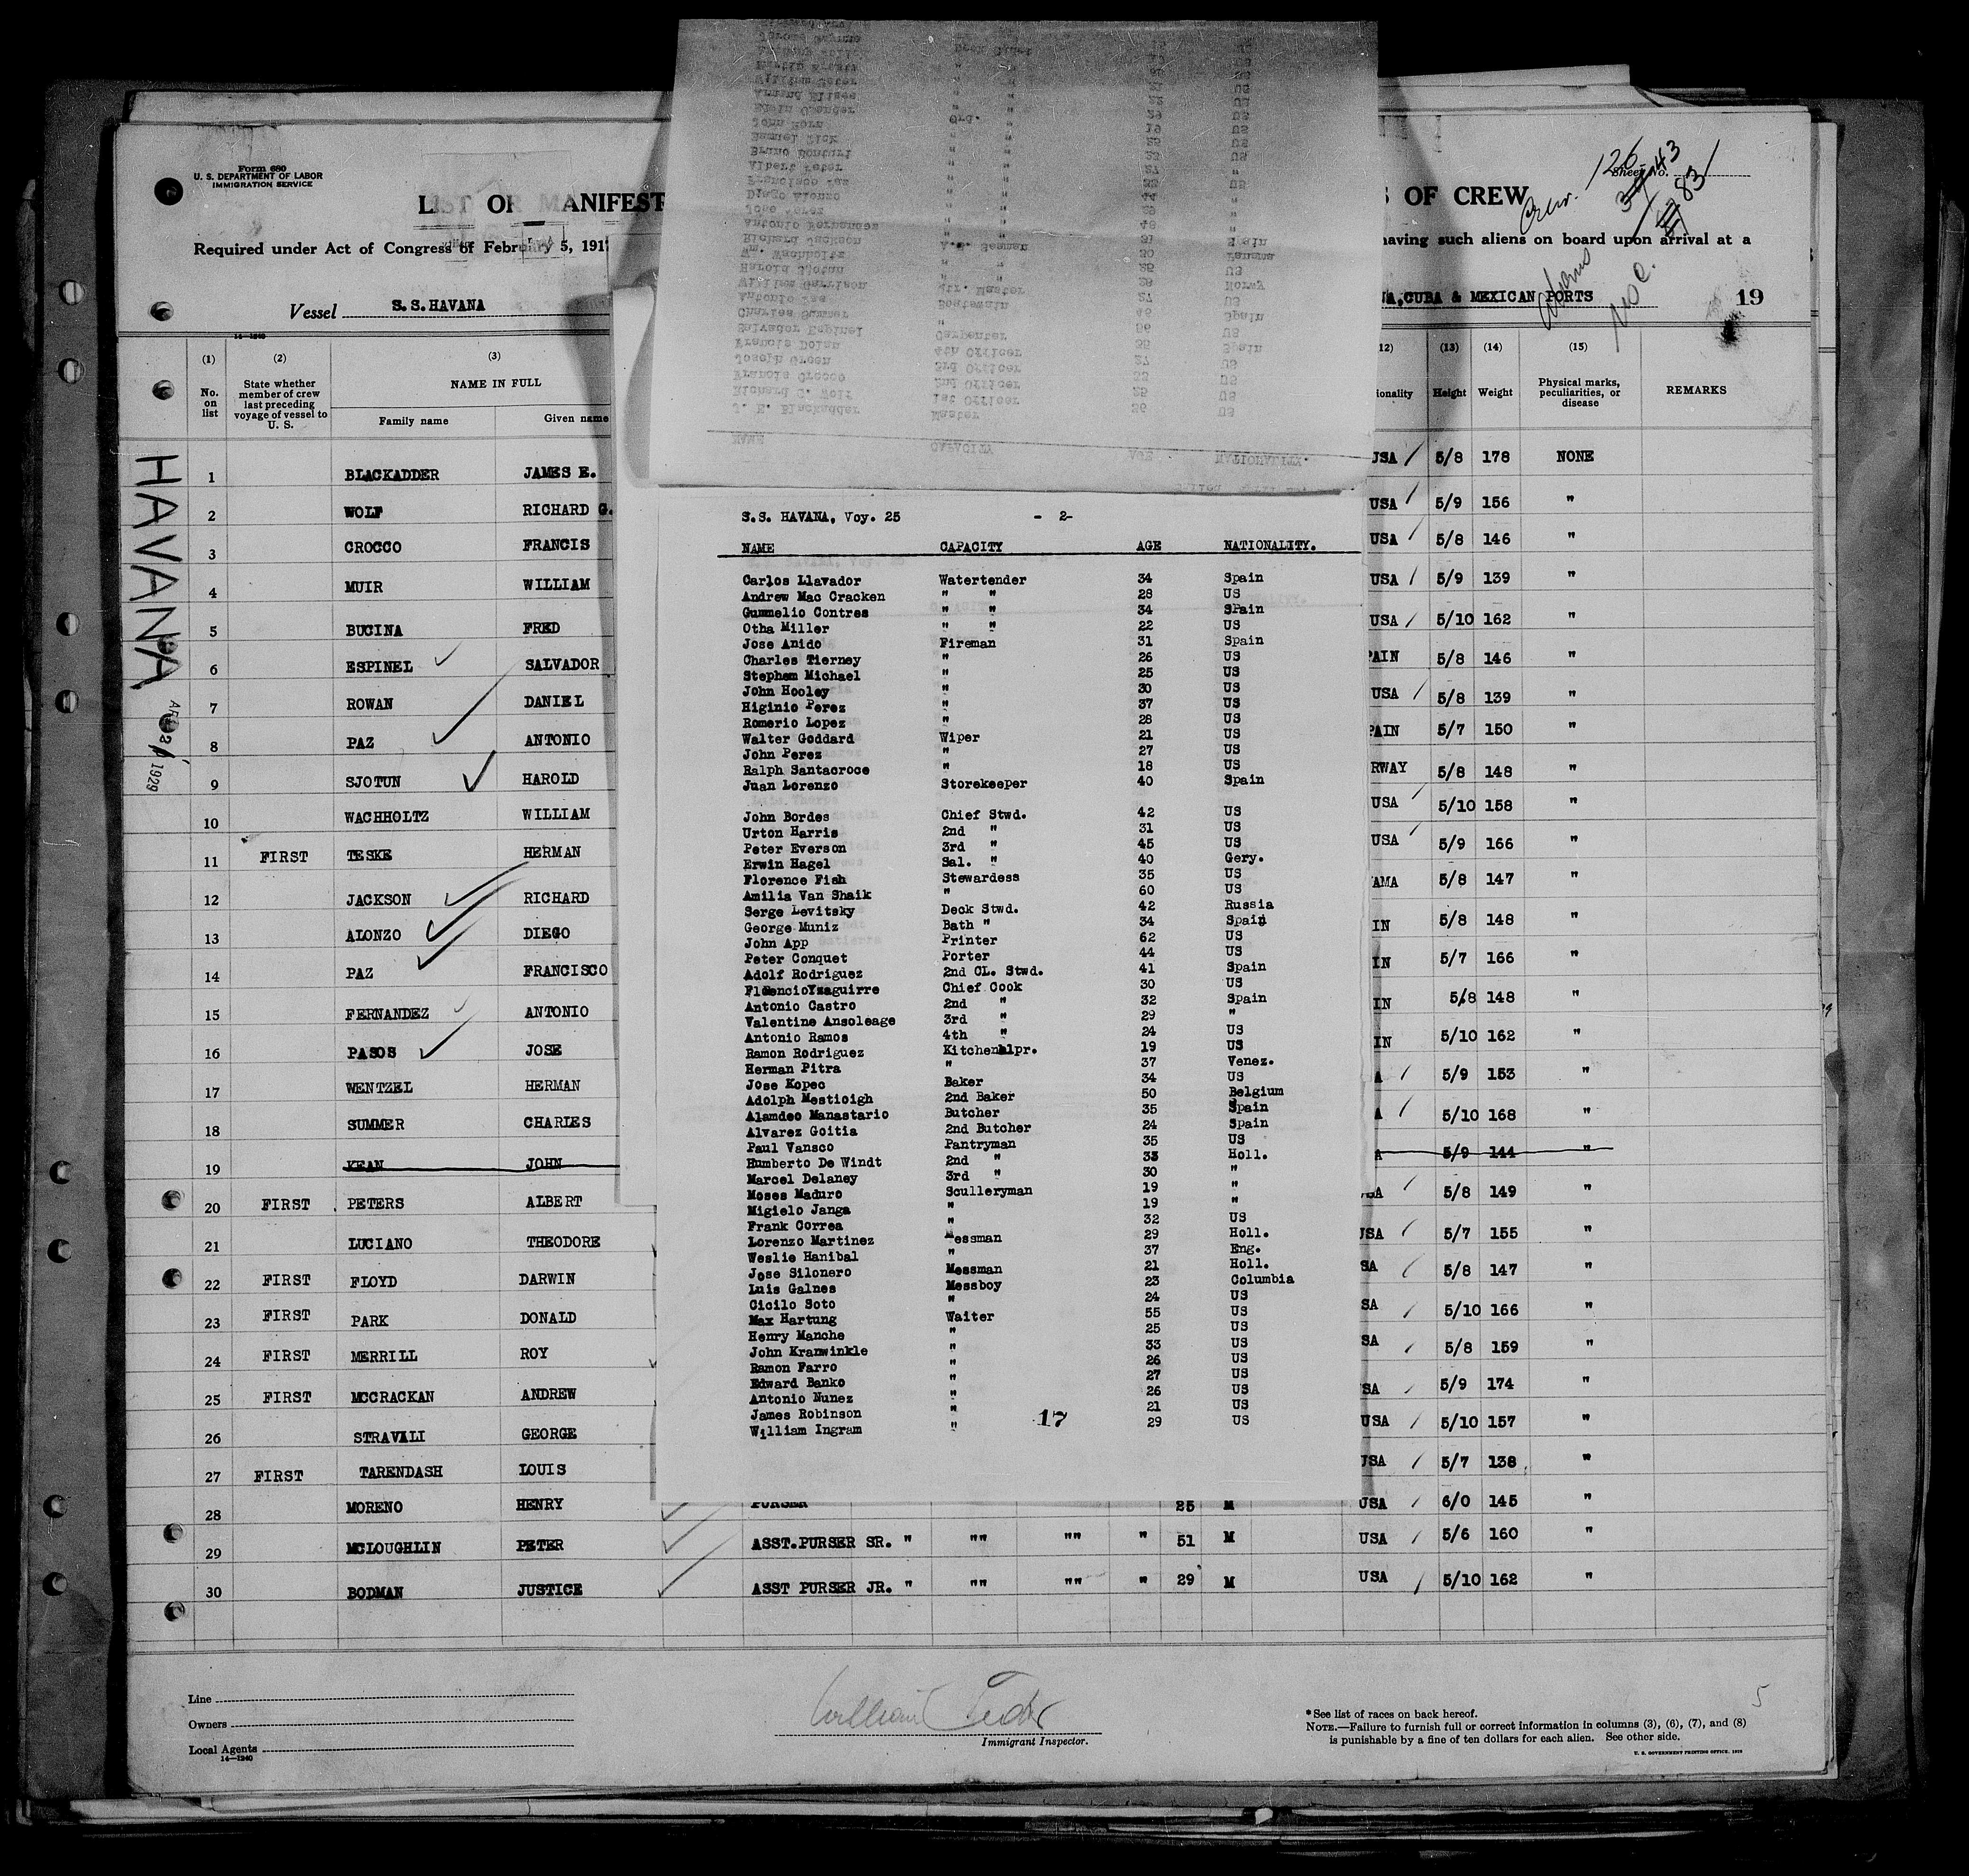 Form 680
U. S. DEPARTMENT OF LABOR
IMMIGRATION SERVICE
LIST OR MANIFEST
S OF CREW
Sheet No.
126
43
83
Crew.
Required under Act of Congress of February 5, 191
having such aliens on board upon arrival at a
Vessel S.S.HAVANA
CUBA & MEXICAN PORTS
19
14—1240
(1) (2) (3) 12) (13) (14) (15)
No. on list
State whether member of crew last preceding voyage of vessel to U. S.
NAME IN FULL
Family name Given name
ionality Height Weight Physical marks, peculiarities, or disease REMARKS
HAVANA
1929
1 BLACKADDER JAMES E. USA 5/8 178 NONE
2 WOLF RICHARD G. USA 5/9 156 "
3 CROCCO FRANCIS USA 5/8 146 "
4 MUIR WILLIAM USA 5/9 139 "
5 BUCINA FRED USA 5/10 162 "
6 ESPINEL SALVADOR PAIN 5/8 146 "
7 ROWAN DANIEL USA 5/8 139 "
8 PAZ ANTONIO PAIN 5/7 150 "
9 SJOTUN HAROLD RWAY 5/8 148 "
10 WACHHOLTZ WILLIAM USA 5/10 158 "
11 FIRST TESKE HERMAN USA 5/9 166 "
12 JACKSON RICHARD AMA 5/8 147 "
13 ALONZO DIEGO IN 5/8 148 "
14 PAZ FRANCISCO IN 5/7 166 "
15 FERNANDEZ ANTONIO IN 5/8 148 "
16 PASOS JOSE IN 5/10 162 "
17 WENTZEL HERMAN A 5/9 153 "
18 SUMMER CHARLES A 5/10 168 "
19 KEAN JOHN A 5/9 144 "
20 FIRST PETERS ALBERT SA 5/8 149 "
21 LUCIANO THEODORE USA 5/7 155 "
22 FIRST FLOYD DARWIN SA 5/8 147 "
23 FIRST PARK DONALD SA 5/10 166 "
24 FIRST MERRILL ROY SA 5/8 159 "
25 FIRST MCCRACKAN ANDREW SA 5/9 174 "
26 STRAVALI GEORGE USA 5/10 157 "
27 FIRST TARENDASH LOUIS USA 5/7 138 "
28 MORENO HENRY PURSER 25 M USA 6/0 145 "
29 MCLOUGHLIN PETER ASST.PURSER SR. " "" "" " 51 M USA 5/6 160 "
30 BODMAN JUSTICE ASST PURSER JR. " "" "" " 29 M USA 5/10 162 "
NAME CAPACITY AGE NATIONALITY.
J. E. Blackadder Master 36 US
Richard G. Wolf 1st Officer 25 US
Francis Crocco 2nd Officer US
Joseph Green 3rd Officer 27 US
Francis Dolan 4th Officer
Salvador Espinel Carpenter
Charles Summer "
Antonio Paz Boatswain
William Garrison Qtr. Master
Harold Sjotun " "
Wm. Wachholtz " "
Richard Jackson A.B. Seaman
Antonio Fernandez " "
Diego Alonzo " "
Francisco Paz " "
S.S. HAVANA, Voy. 25 - 2-
NAME CAPACITY AGE NATIONALITY.
Carlos Llavador Watertender 34 Spain
Andrew Mac Cracken " " 28 US
Gummelio Contres " " 34 Spain
Otha Miller " " 22 US
Jose Anido Fireman 31 Spain
Charles Tierney " 26 US
Stephem Michael " 25 US
John Hooley " 30 US
Higinio Perez " 37 US
Romerio Lopez " 28 US
Walter Goddard Wiper 21 US
John Perez " 27 US
Ralph Santacroce " 18 US
Juan Lorenzo Storekeeper 40 Spain
John Bordes Chief Stwd. 42 US
Urton Harris 2nd " 31 US
Peter Everson 3rd " 45 US
Erwin Hagel Sal. " 40 Gery.
Florence Fish Stewardess 35 US
Amilia Van Shaik " 60 US
Serge Levitsky Deck Stwd. 42 Russia
George Muniz Bath " 34 Spain
John App Printer 62 US
Peter Conquet Porter 44 US
Adolf Rodriguez 2nd CL. Stwd. 41 Spain
FlorencioYzaguirre Chief Cook 30 US
Antonio Castro 2nd " 32 Spain
Valentine Ansoleage 3rd " 29 "
Antonio Ramos 4th " 24 US
Ramon Rodriguez Kitchenhlpr. 19 US
Herman Pitra " 37 Venez.
Jose Kopec Baker 34 US
Adolph Mestioigh 2nd Baker 50 Belgium
Alamdeo Manastario Butcher 35 Spain
Alvarez Goitia 2nd Butcher 24 Spain
Paul Vansco Pantryman 35 US
Humberto De Windt 2nd " 33 Holl.
Marcel Delaney 3rd " 30 "
Moses Maduro Sculleryman 19 "
Migielo Janga " 19
Frank Correa " 32 US
Lorenzo Martinez Messman 29 Holl.
Weslie Hanibal " 37 Eng.
Jose Silonero Messman 21 Holl.
Luis Galnes Messboy 23 Columbia
Cicilo Soto " 24 US
Max Hartung Waiter 55 US
Henry Manche " 25 US
John Kranwinkle " 33 US
Ramon Farro " 26 US
Edward Banko " 27 US
Antonio Nunez " 26 US
James Robinson " 21 US
William Ingram " 29 US
17
Line
Owners
Local Agents
14—1240
William Tudor
Immigrant Inspector.
5
*See list of races on back hereof.
NOTE.—Failure to furnish full or correct information in columns (3), (6), (7), and (8)
is punishable by a fine of ten dollars for each alien. See other side.
U. S. GOVERNMENT PRINTING OFFICE: 1928